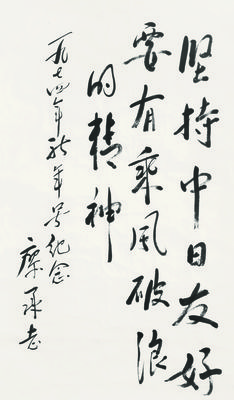 坚持中日友好
要有乘风破浪
的精神
一九七四年新年号纪念
廖承志